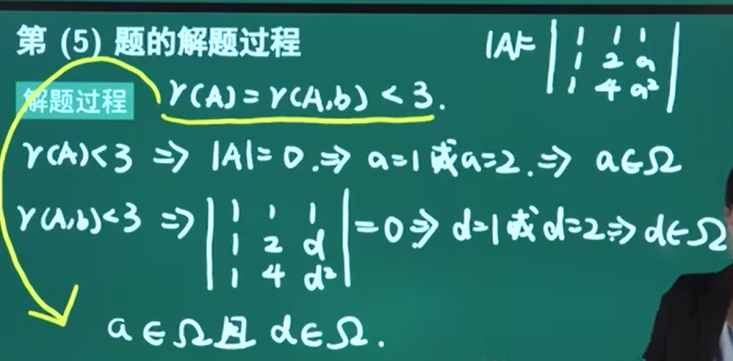 第 (5) 题的解题过程
|A|= | 1 1 1 |
| 1 2 a |
| 1 4 a² |
解题过程 r(A)=r(A,b)<3.
r(A)<3 ⇒ |A|=0.⇒ a=1或a=2.⇒ a∈Ω
r(A,b)<3 ⇒ | 1 1 1 |
| 1 2 d | =0⇒ d=1或d=2⇒d∈Ω
| 1 4 d² |
a∈Ω且d∈Ω.